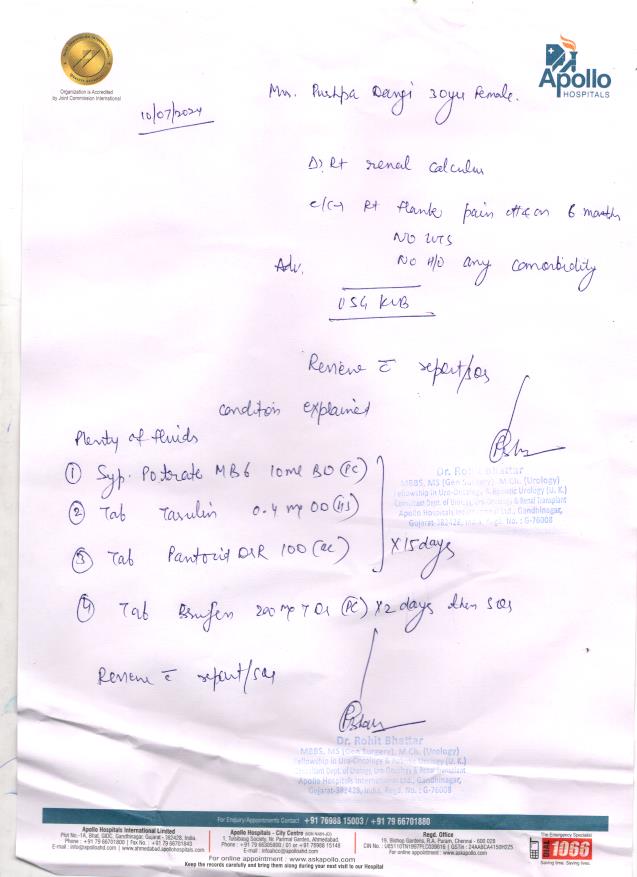 Organization is Accredited
by Joint Commission International
Apollo
HOSPITALS
10/07/2024
Mrs. Pushpa Dangi 30yr Female.
Δ: Rt renal calculus
c/c→ Rt flank pain off & on 6 months
NO LUTS
NO H/O any comorbidity
Adv.
USG KUB
Review c̄ report/sos
condition explained
Plenty of fluids
① Syp. Potrate MB6 10ml BD (PC)
② Tab Tasulin 0.4 mg OD (HS)
③ Tab Pantocid DSR 1OD (ac)
X 15 days
④ Tab Brufen 200 mg TDS (PC) X 2 days then SOS
Dr. Rohit Bhattar
MBBS, MS (Gen Surgery), M.Ch. (Urology)
Fellowship in Uro-Oncology & Robotic Urology (U. K.)
Consultant Dept. of Urology, Uro-Oncology & Renal Transplant
Apollo Hospitals International Ltd., Gandhinagar,
Gujarat-382428, India. Regd. No. : G-76008
Review c̄ report/sos
Dr. Rohit Bhattar
MBBS, MS (Gen Surgery), M.Ch. (Urology)
Fellowship in Uro-Oncology & Robotic Urology (U. K.)
Consultant Dept. of Urology, Uro-Oncology & Renal Transplant
Apollo Hospitals International Ltd., Gandhinagar,
Gujarat-382428, India. Regd. No. : G-76008
For Enquiry/Appointments Contact +91 76988 15003 / +91 79 66701880
Apollo Hospitals International Limited
Plot No.-1A, Bhat, GIDC, Gandhinagar, Gujarat - 382428, India.
Phone : +91 79 66701800 | Fax No. : +91 79 66701843
E-mail : info@apolloahd.com | www.ahmedabad.apollohospitals.com
Apollo Hospitals - City Centre
1, Tulsibaug Society, Nr. Parimal Garden, Ahmedabad.
Phone : +91 79 66305800 / 01 or +91 76988 15148
E-mail : infoahcc@apolloahd.com
Regd. Office
19, Bishop Gardens, R.A. Puram, Chennai - 600 028
CIN No. : U85110TN1997PLC039016 | GSTIN : 24AABCA4150H2Z5
For online appointment : www.askapollo.com
For online appointment : www.askapollo.com
Keep the records carefully and bring them along during your next visit to our Hospital
The Emergency Specialist
1066
Saving time. Saving lives.